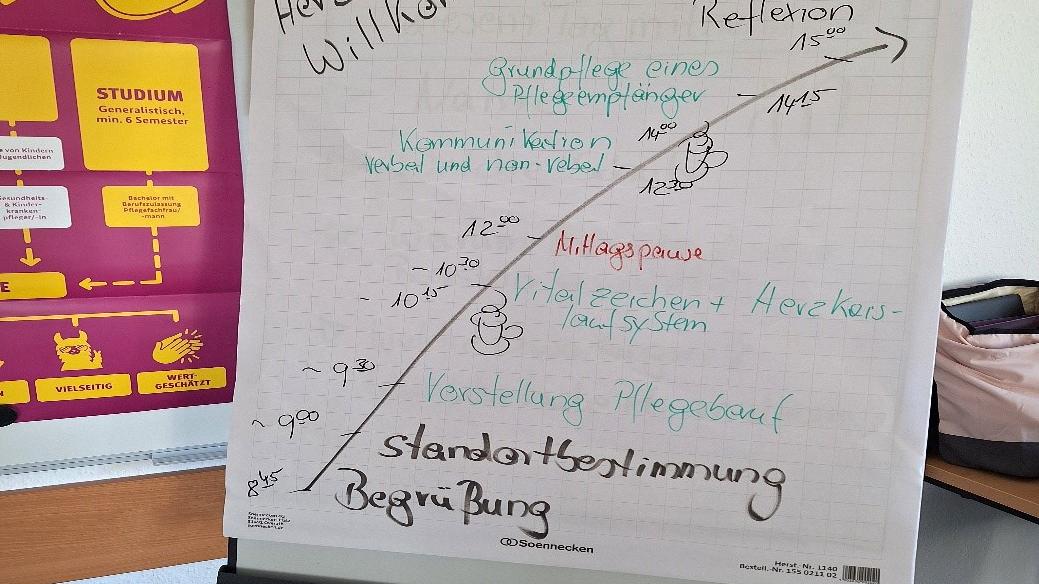 STUDIUM
Generalistisch,
min. 6 Semester
e von Kindern
ugendlichen
esundheits-
& Kinder-
kranken-
pfleger/-in
Bachelor mit
Berufszulassung
Pflegefachfrau/
-mann
E
N
VIELSEITIG
WERT-
GESCHÄTZT
Herz
Willko
Reflexion
15 00
Grundpflege eines
Pflegeempfänger
14 15
14 00
Kommunikation
verbal und non-vebal
12 30
12 00
Mittagspause
~ 10 30
~ 10 15
Vitalzeichen + Herzkers-
laufsystem
~ 9 30
Vorstellung Pflegebauf
~ 9 00
Standortbestimmung
8 45
Begrüßung
Soennecken
Herst.-Nr. 1140
Bestell.-Nr. 155 0211 02